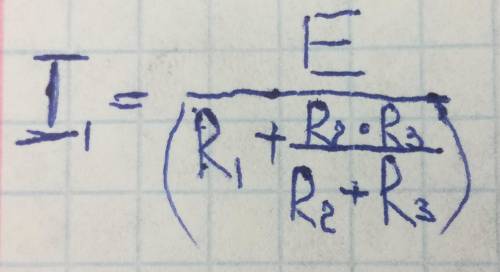 I₁ = E / (R₁ + (R₂ · R₃) / (R₂ + R₃))